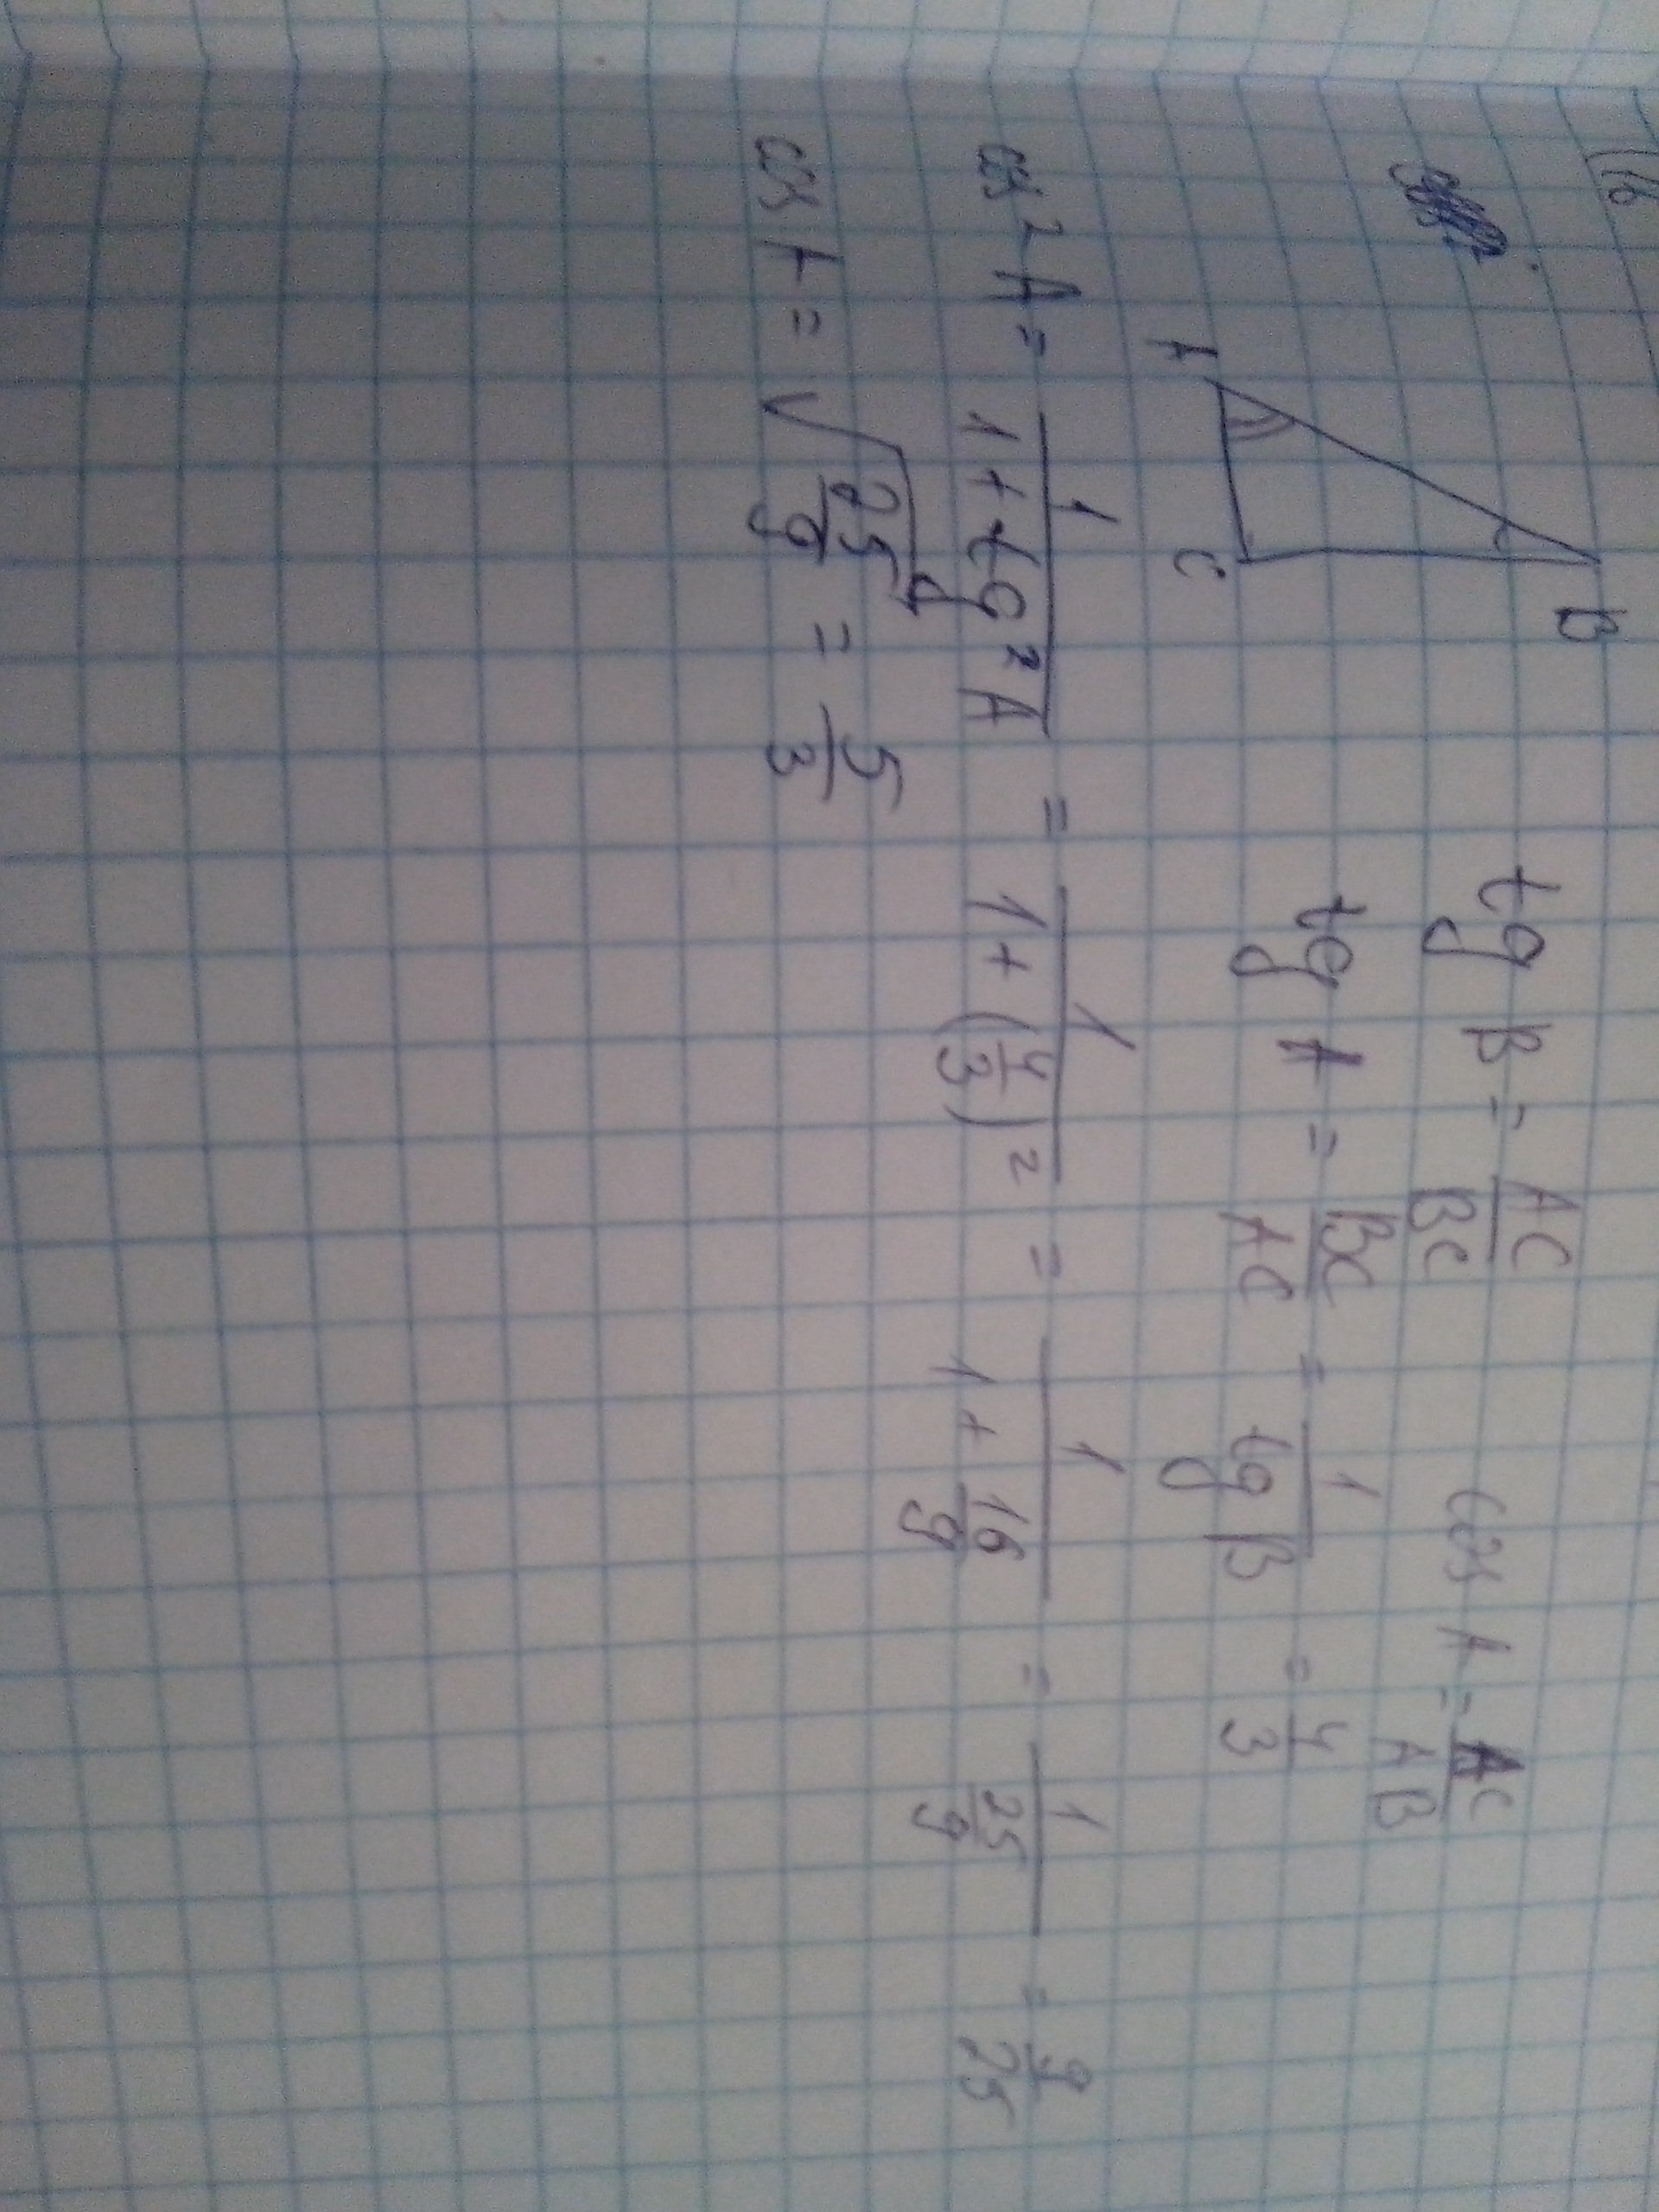 B
A
C
tg B = AC/BC
cos A = AC/AB
tg A = BC/AC = 1/tg B = 4/3
cos²A = 1/(1+tg²A) = 1/(1+(4/3)²) = 1/(1+16/9) = 1/(25/9) = 9/25
cos A = √(25/9) = 5/3